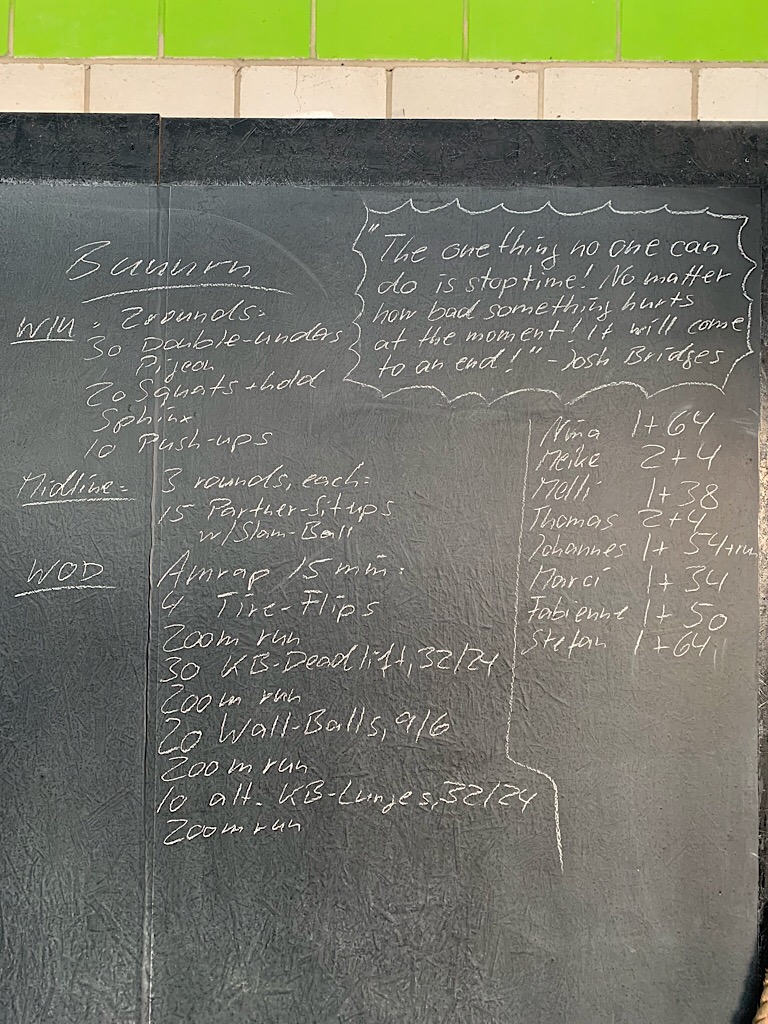 Buuurn
W/U: 2 rounds:
30 Double-unders
Pigeon
20 Squats + hold
Sphinx
10 Push-ups
Midline: 3 rounds, each:
15 Partner-Situps
w/ Slam-Ball
WOD Amrap 15 min:
4 Tire-Flips
200m run
30 KB-Deadlift, 32/24
200m run
20 Wall-Balls, 9/6
200m run
10 alt. KB-Lunges, 32/24
200m run
"The one thing no one can
do is stop time! No matter
how bad something hurts
at the moment! It will come
to an end!" - Josh Bridges
Nina 1+64
Meike 2+4
Melli 1+38
Thomas 2+4
Johannes 1+54+run
Marci 1+34
Fabienne 1+50
Stefan 1+64